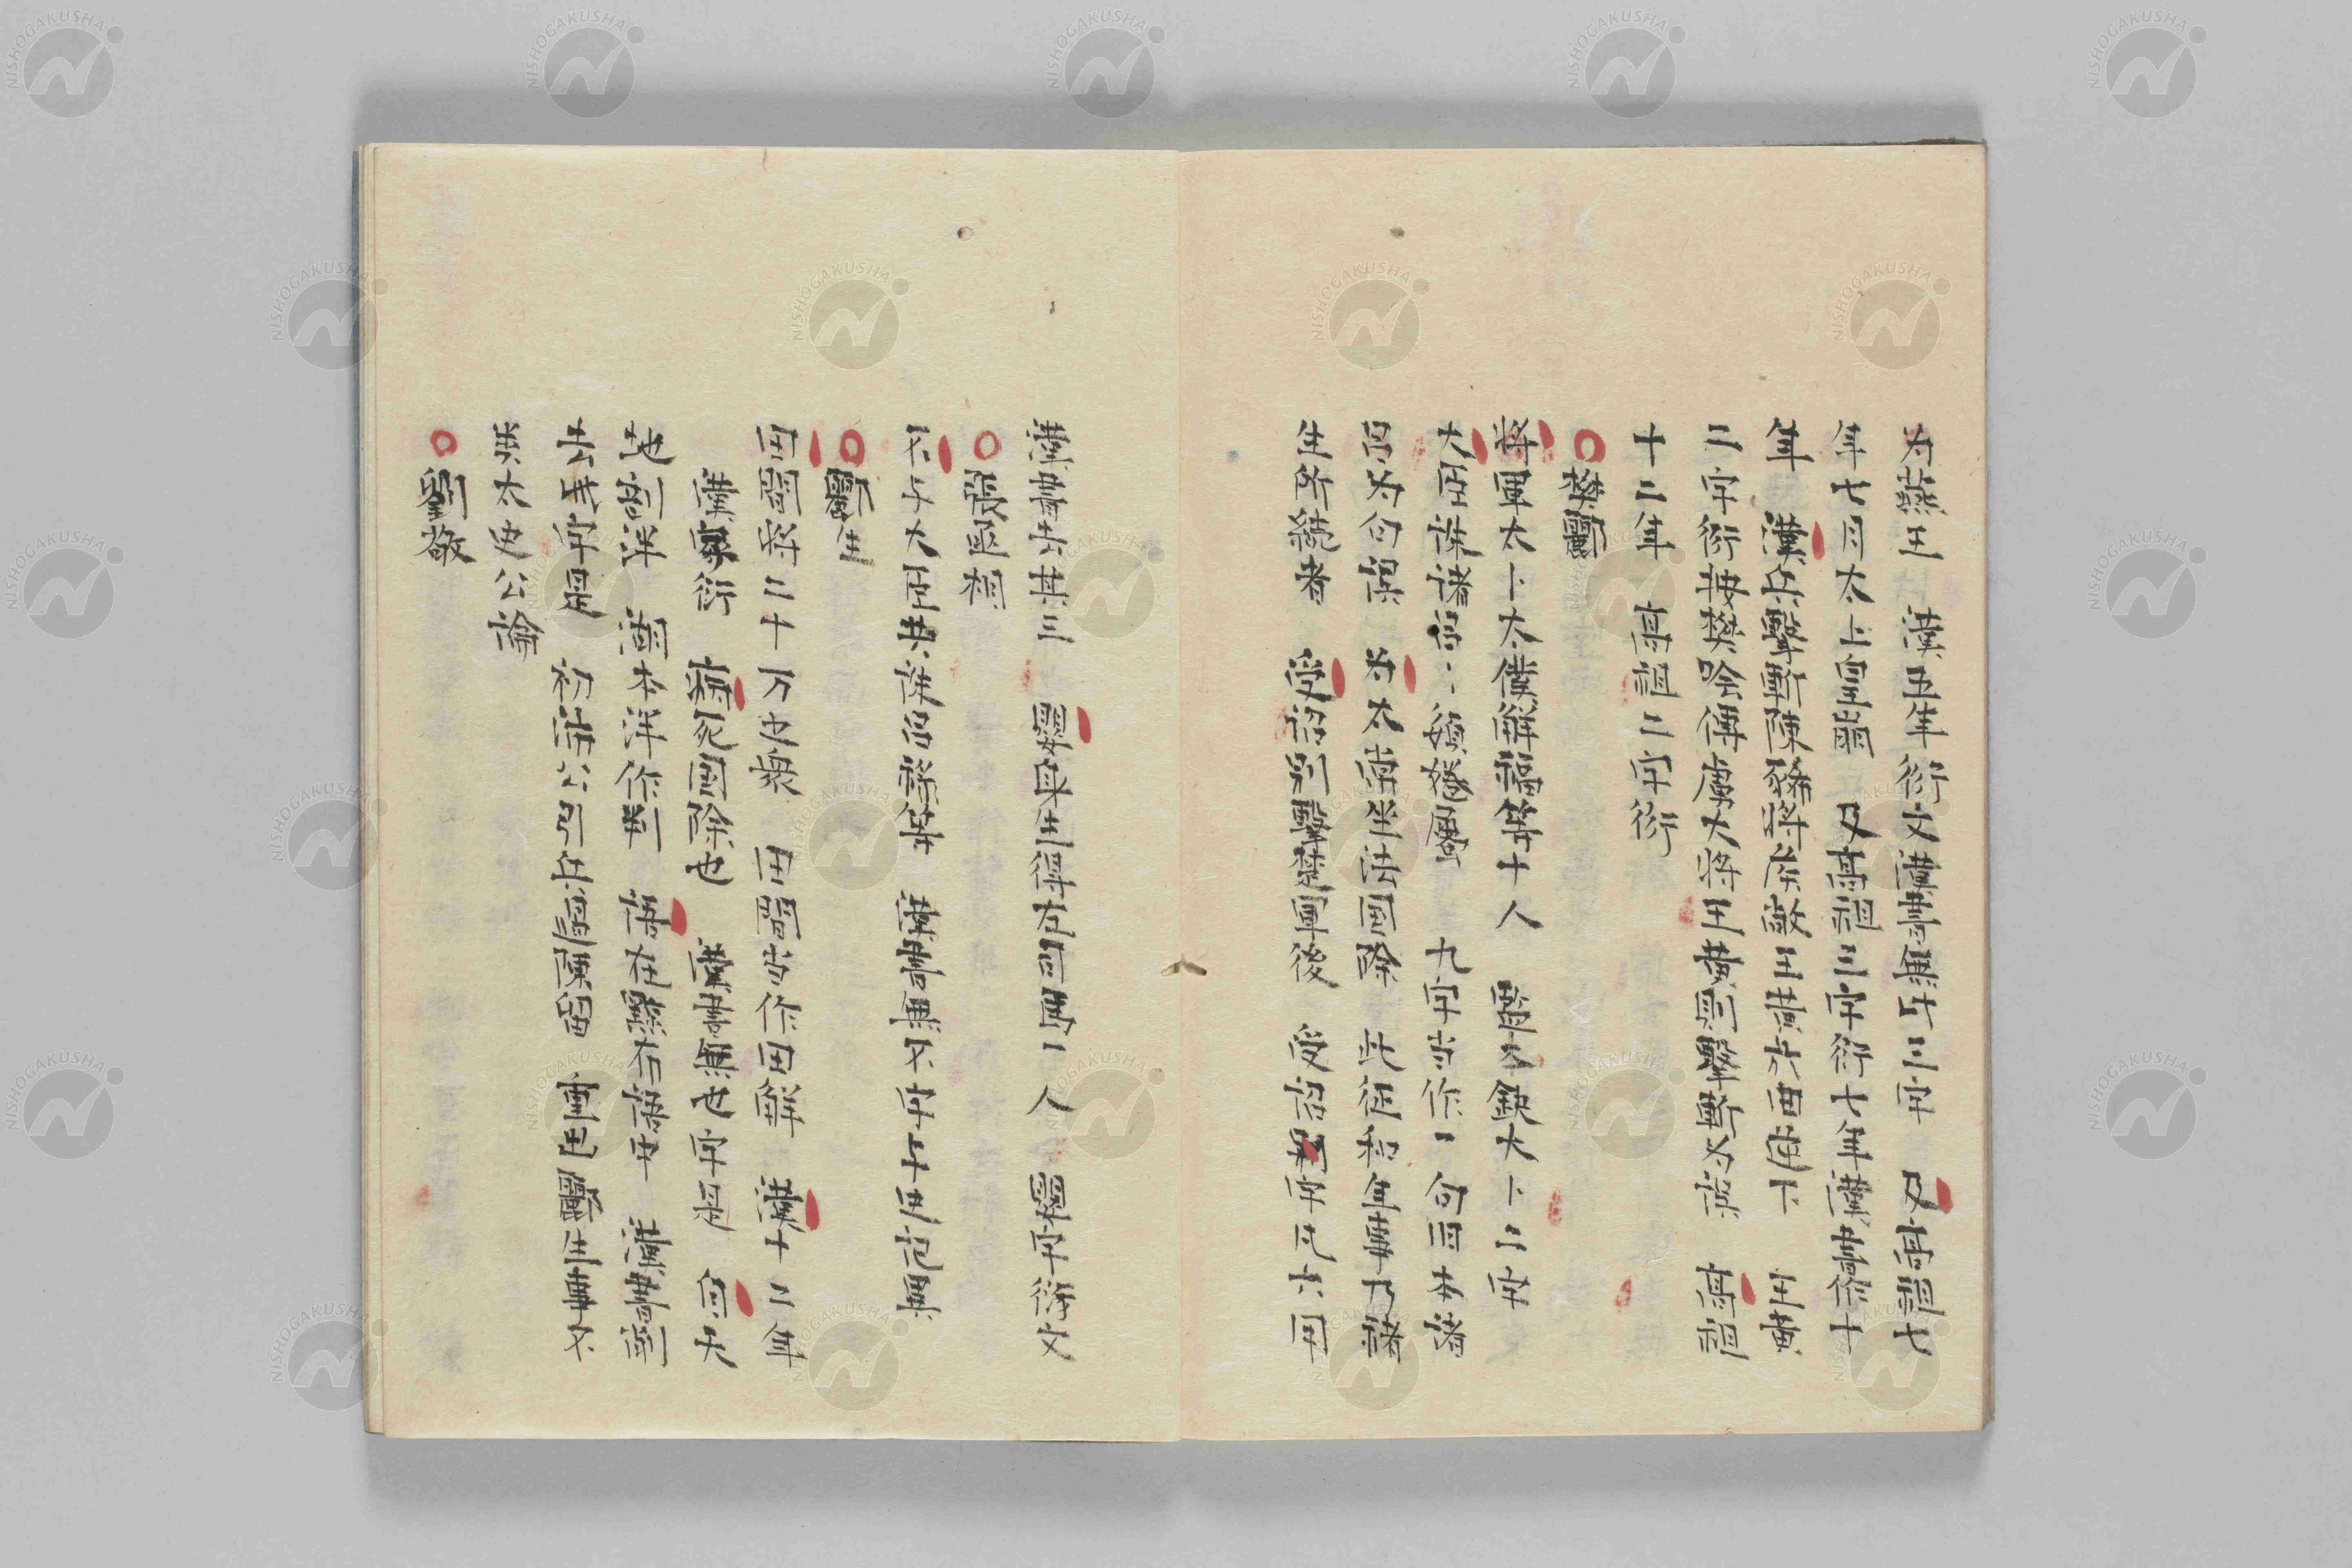 为燕王　漢五年衍文漢書無此三字　又高祖七
年七月太上皇崩　又高祖三字衍七年漢書作十
年　漢兵擊斬陳豨將侯敞王黃於曲逆下　王黃
二字衍據樊噲傳虜大將王黃則擊斬为誤　高祖
十二年　高祖二字衍
○樊酈
將軍太卜太僕解福等十人　太卜二字
大臣誅諸呂〻須婘屬　九字當作一句因諸
呂为句誤　为太常坐法國除　此征和年事乃諸
生所續者　受詔別擊楚軍後　受詔別字凡六
漢書　嬰身生得左司馬一人　嬰字衍文
○張丞相
不與大臣共誅呂祿等　漢書無不字與史記異
○酈生
田間將二十万之衆　田間當作田解　漢十二年
漢字衍　病死國除也　漢書無也字是
漢書
武字是　初沛公引兵過陳留　重出酈生事文
異太史公論
○劉敬